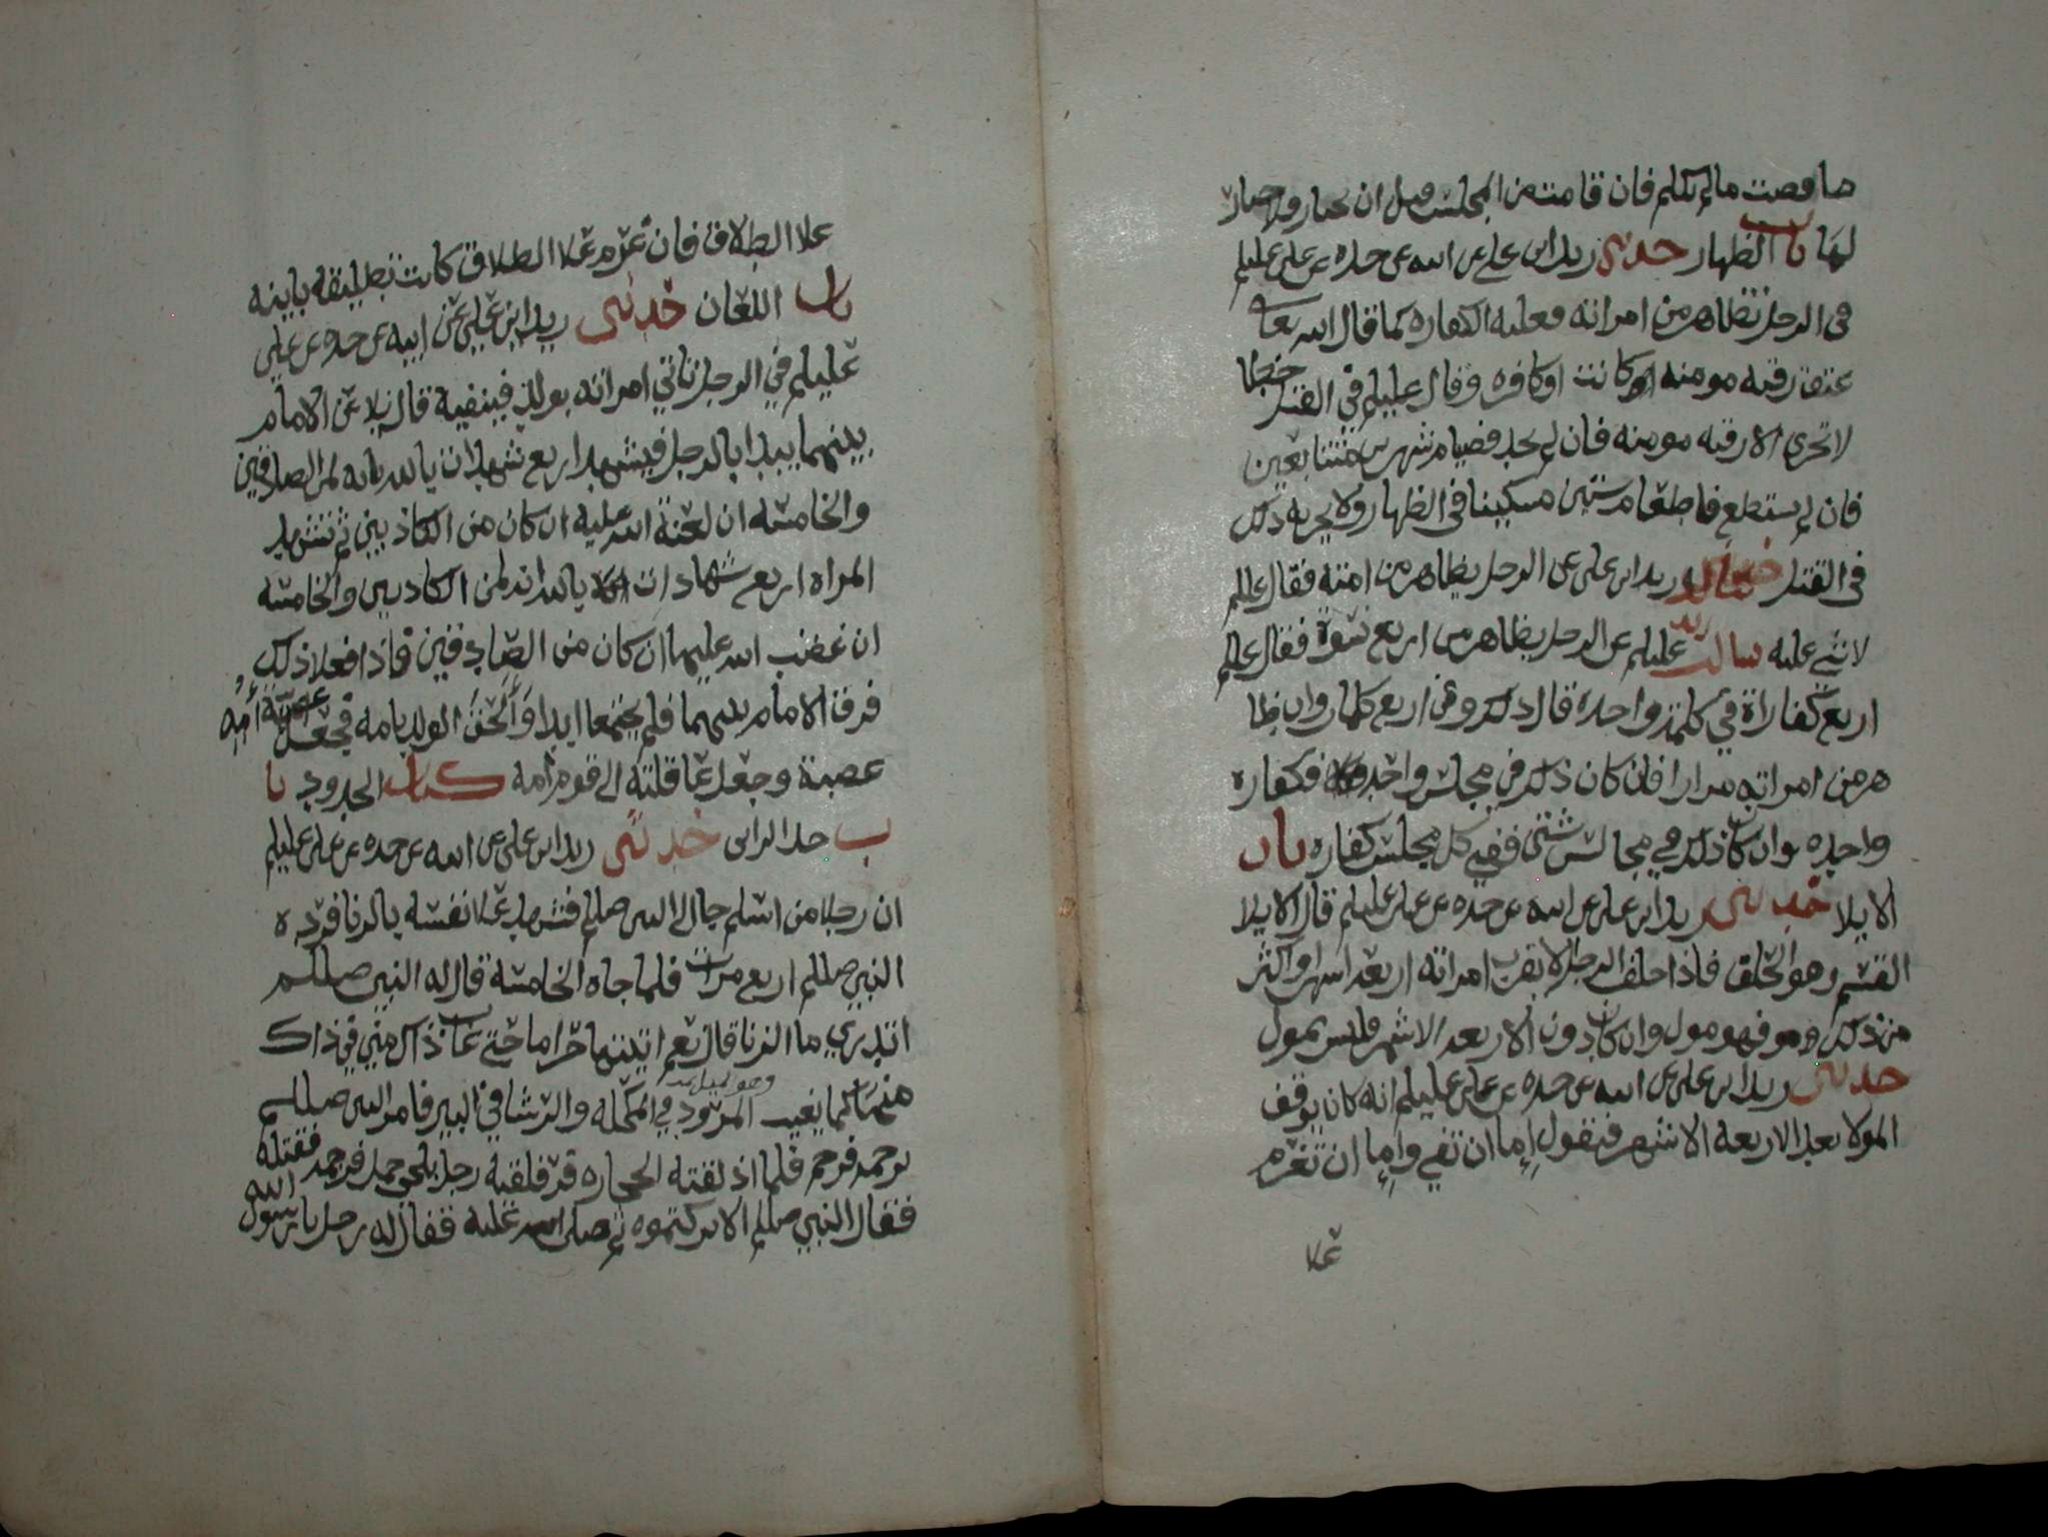 ما قصت مالم تكلم فان قامت من المجلس قبل ان تختار فلا خيار
لها باب الظهار حدثني زيد ابن علي عن ابيه عن جده عن علي عليلم
في الرجل يظاهر من امراته فعليه الكفاره كما قال الله تعالى
عتق رقبه مومنه او كانت او كافره وقال عليلم في القتل خطا
لا تجزي الا رقبه مومنه فان لم يجد فصيام شهرين متتابعين
فان لم يستطع فاطعام ستين مسكينا في الظهار ولا يجزيه ذلك
في القتل سالت زيد ابن علي عن الرجل يظاهر من امته فقال عللم
لا شي عليه سالت زيد عليلم عن الرجل يظاهر من اربع نسوة فقال عللم
اربع كفاراة في كلمة واحدة قال ذلك وفي اربع كلمات وان ظا
هر من امراته مرارا فان كان ذلك في مجلس واحد فكفارة
واحده وان كان ذلك في مجالس شتى ففي كل مجلس كفاره باب
الايلا حدثني زيد ابن علي عن ابيه عن جده عن علي عليلم قال الايلا
القسم وهو الحلف فاذا حلف الرجل لا يقرب امراته اربعة اشهر او اكثر
من ذلك فهو مول وان كان دون الاربعه الاشهر فليس بمول
حدثني زيد ابن علي عن ابيه عن جده عن علي عليلم انه كان يوقف
المولا بعد الاربعه الاشهر فيقول إما ان تفي وإما ان تعزم
علا
علا الطلاق فان عزم علا الطلاق كانت تطليقه باينه
باب اللعان حدثني زيد ابن علي عن ابيه عن جده عن علي
عليلم في الرجل تاتي امراته بولد فينفيه قال يلاعن الامام
بينهما يبدا بالرجل فيشهد اربع شهدات بالله بانه لمن الصادقين
والخامسه ان لعنة الله عليه ان كان من الكاذبين ثم تشهد
المراه اربع شهادات بالله انه لمن الكاذبين والخامسه
ان غضب الله عليها ان كان من الصادقين فاذا فعلا ذلك
فرق الامام بينهما فلم يجتمعا ابدا وألحق الولد بامه فجعل عصبة أمه
عصبة وجعل عاقلته الى قوم امه كتاب الحدود با
ب حد الزاني حدثني زيد ابن علي عن ابيه عن جده عن علي عليلم
ان رجلا من اسلم جا الى النبي صللم فشهد علا نفسه بالزنا فرده
النبي صللم اربع مرات فلما جاه الخامسة قال له النبي صللم
اتدري ما الزنا قال نعم اتيتها حراما حتى غاب ذاك مني في ذاك
منها كما يغيب المرود في المكحله والرشا في البير فامر النبي صللم
برجمه فرجم فلما اذلقته الحجاره فر فلقيه رجل بلحي جمل فرجمه فقتله
فقال النبي صللم الا تركتموه ثم صلى عليه فقال له رجل يا رسول الله